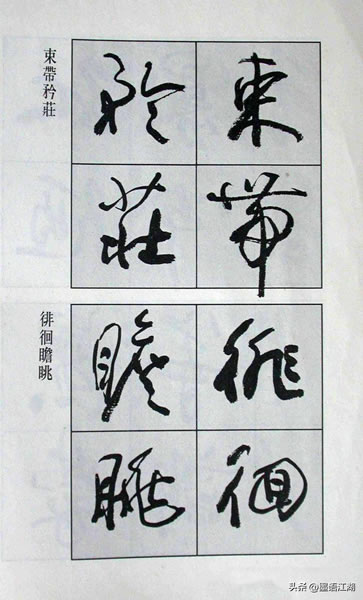 束帶矜莊
束帶
矜莊
徘徊瞻眺
徘徊
瞻眺
头条 @墨语江湖